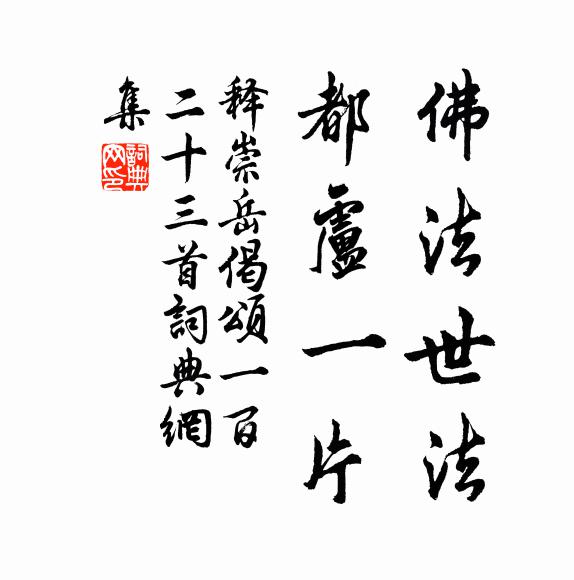 佛法世法
都盧一片
释崇岳偈頌一百
二十三首詞典網
集
詞典网印